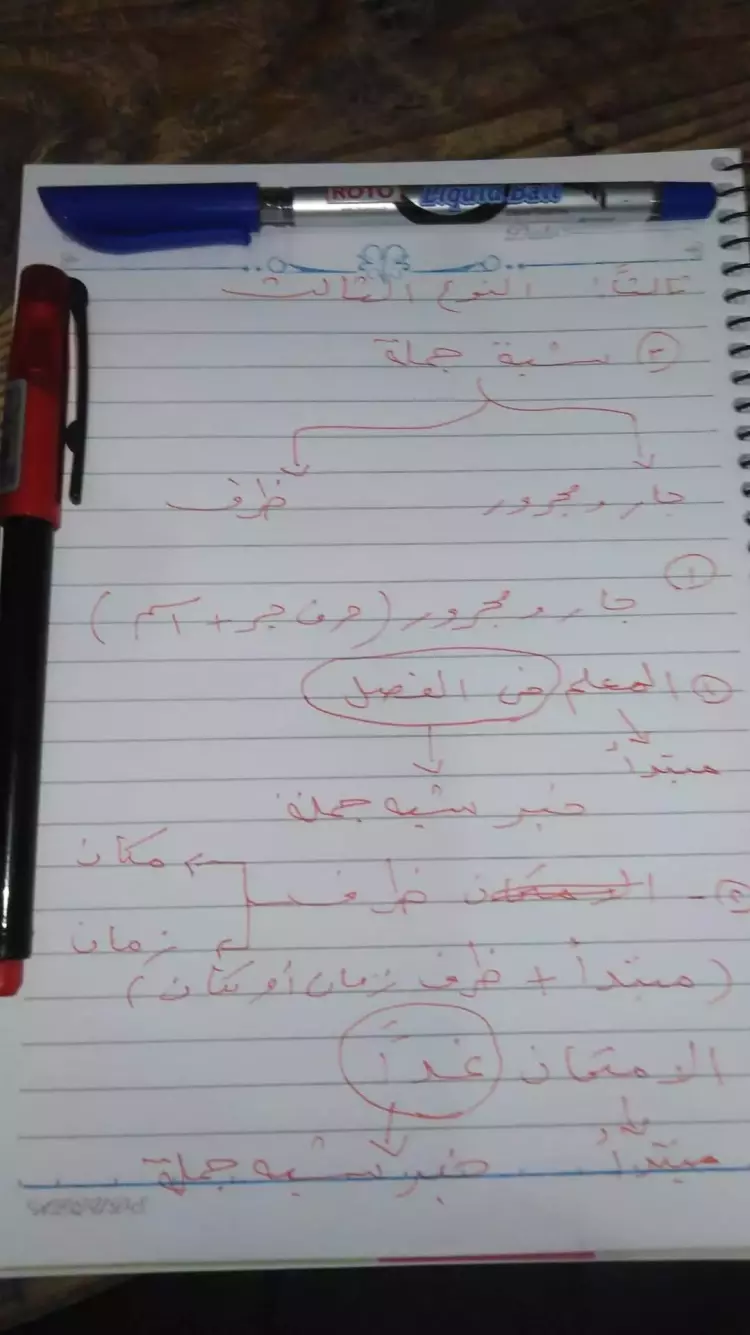 ROTO Liquid Ball
ثالثاً: النوع الثالث
٣ شبة جملة
جار ومجرور ظرف
١
جار ومجرور (حرف جر + اسم)
المعلم في الفصل
مبتدأ
خبر شبه جملة
مكان
٢- ظرف
زمان
(مبتدأ + ظرف زمان أو مكان)
الامتحان غداً
مبتدأ خبر شبه جملة